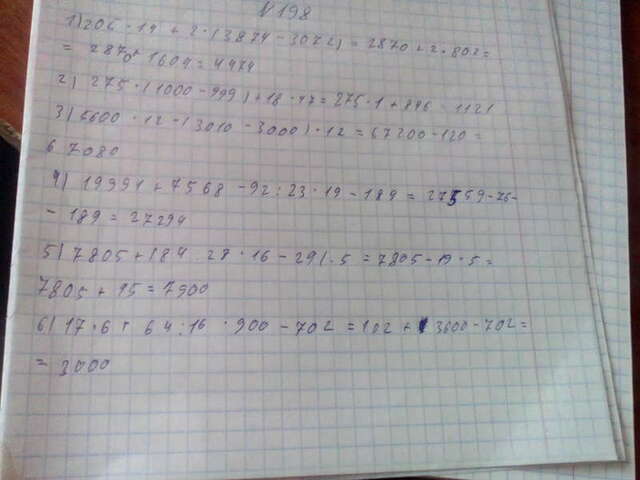 №198
1) 206 · 14 + 2 · (3874 - 3072) = 2870 + 2 · 802 =
= 2870 + 1604 = 4474
2) 275 · (1000 - 999) + 18 · 47 = 275 · 1 + 846 = 1121
3) 5600 · 12 - (3010 - 3000) · 12 = 67200 - 120 =
67080
4) 19991 + 7568 - 92 : 23 · 19 - 189 = 27559 - 76 -
- 189 = 27294
5) 7805 + (84 : 28 · 16 - 29) · 5 = 7805 - 19 · 5 =
7805 + 95 = 7900
6) 17 · 6 + 64 : 16 · 900 - 702 = 102 + 3600 - 702 =
= 3000